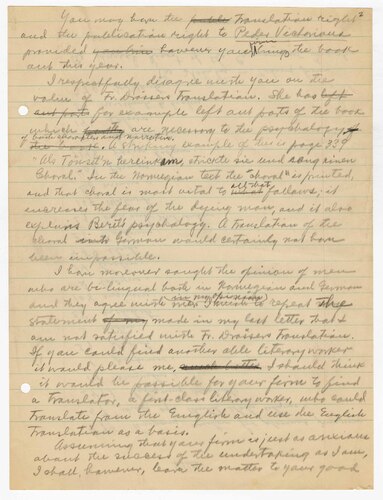 2
You may have the public translation right
and the publication right to Peder Victorious
provided however you bring the book
out this year.
I respectfully disagree with you on the
value of Fr. Drøsers Translation. She has left
out parts for example left out parts of the book
which are necessary to the psychology
of both characters and narrative.
the book. A striking example of this is page 399
"Als Tönset'n hereinkam strickte sie und sang einen
Choral." In the Norwegian text the "choral" is printed,
and that choral is most vital to all that follows; it
increases the fear of the dying man, and it also
explains Berit's psychology. A translation of the
choral into German would certainly not have
been impossible.
I have moreover sought the opinion of men
who are bi-lingual both in Norwegian and German
and they agree with me in my opinion. I wish to repeat the
statement made in my last letter that I
am not satisfied with Fr. Drøsers Translation.
If you could find another able literary worker
it would please me, I should think
it would be possible for your firm to find
a translator, a first-class literary worker, who could
translate from the English and use the English
Translation as a basis.
Assuming that your firm is just as anxious
about the success of the undertaking as I am,
I shall, however, leave the matter to your good